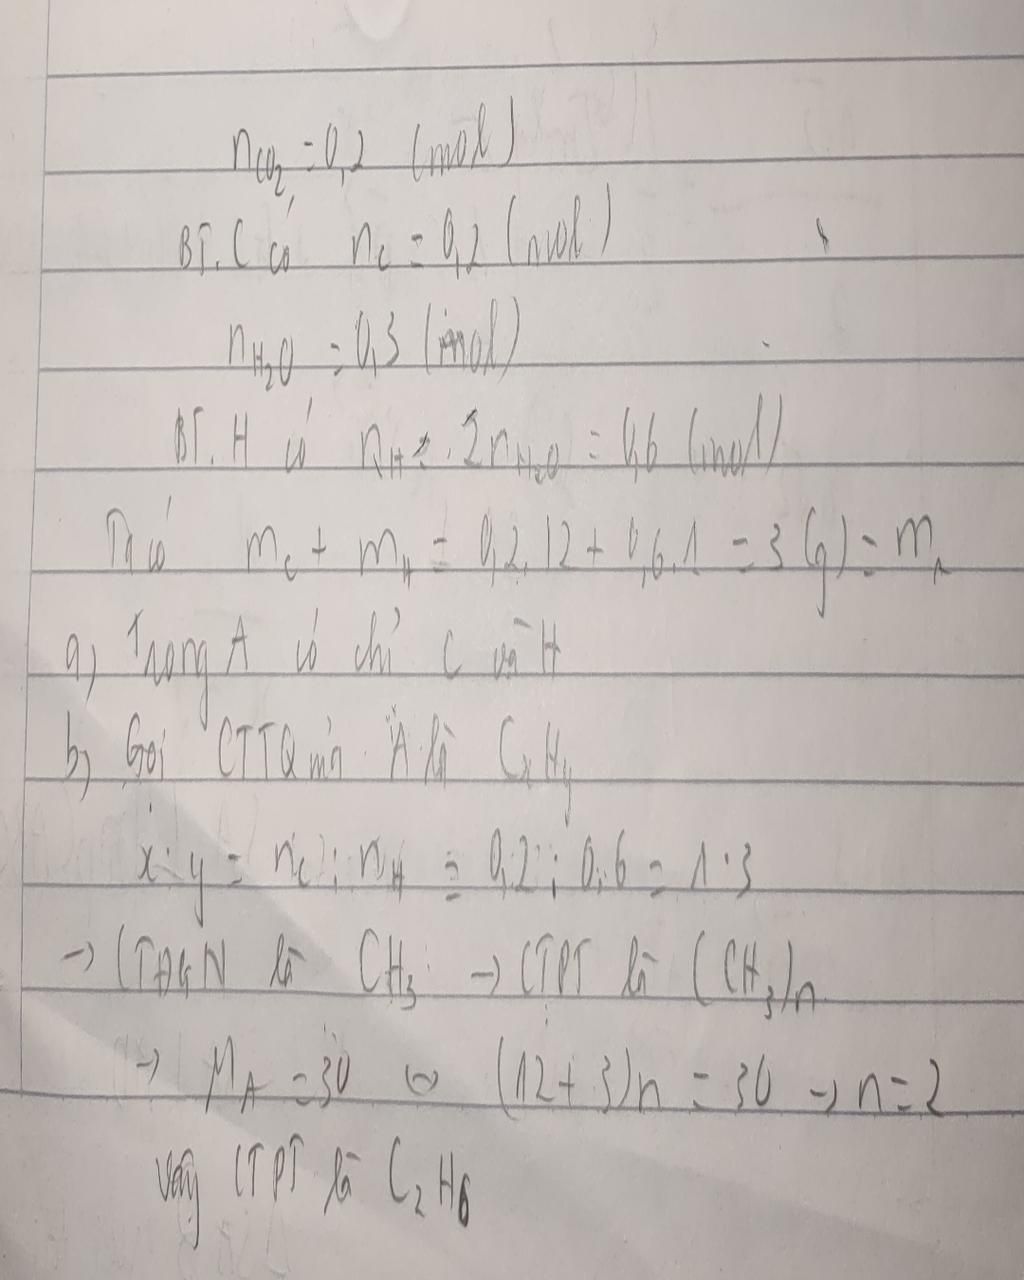 nCO₂ = 0,2 (mol)
BT.C có nC = 0,2 (mol)
nH₂O = 0,3 (mol)
BT.H có nH = 2nH₂O = 0,6 (mol)
Ta có mC + mH = 0,2.12 + 0,6.1 = 3 (g) = mA
a) Trong A có chỉ C và H
b) Gọi CTTQ A là CxHy
x:y = nC : nH = 0,2 : 0,6 = 1:3
→ CTĐGN là CH₃ → CTPT là (CH₃)n
→ MA = 30 ⇔ (12+3)n = 30 → n=2
vậy CTPT là C₂H₆